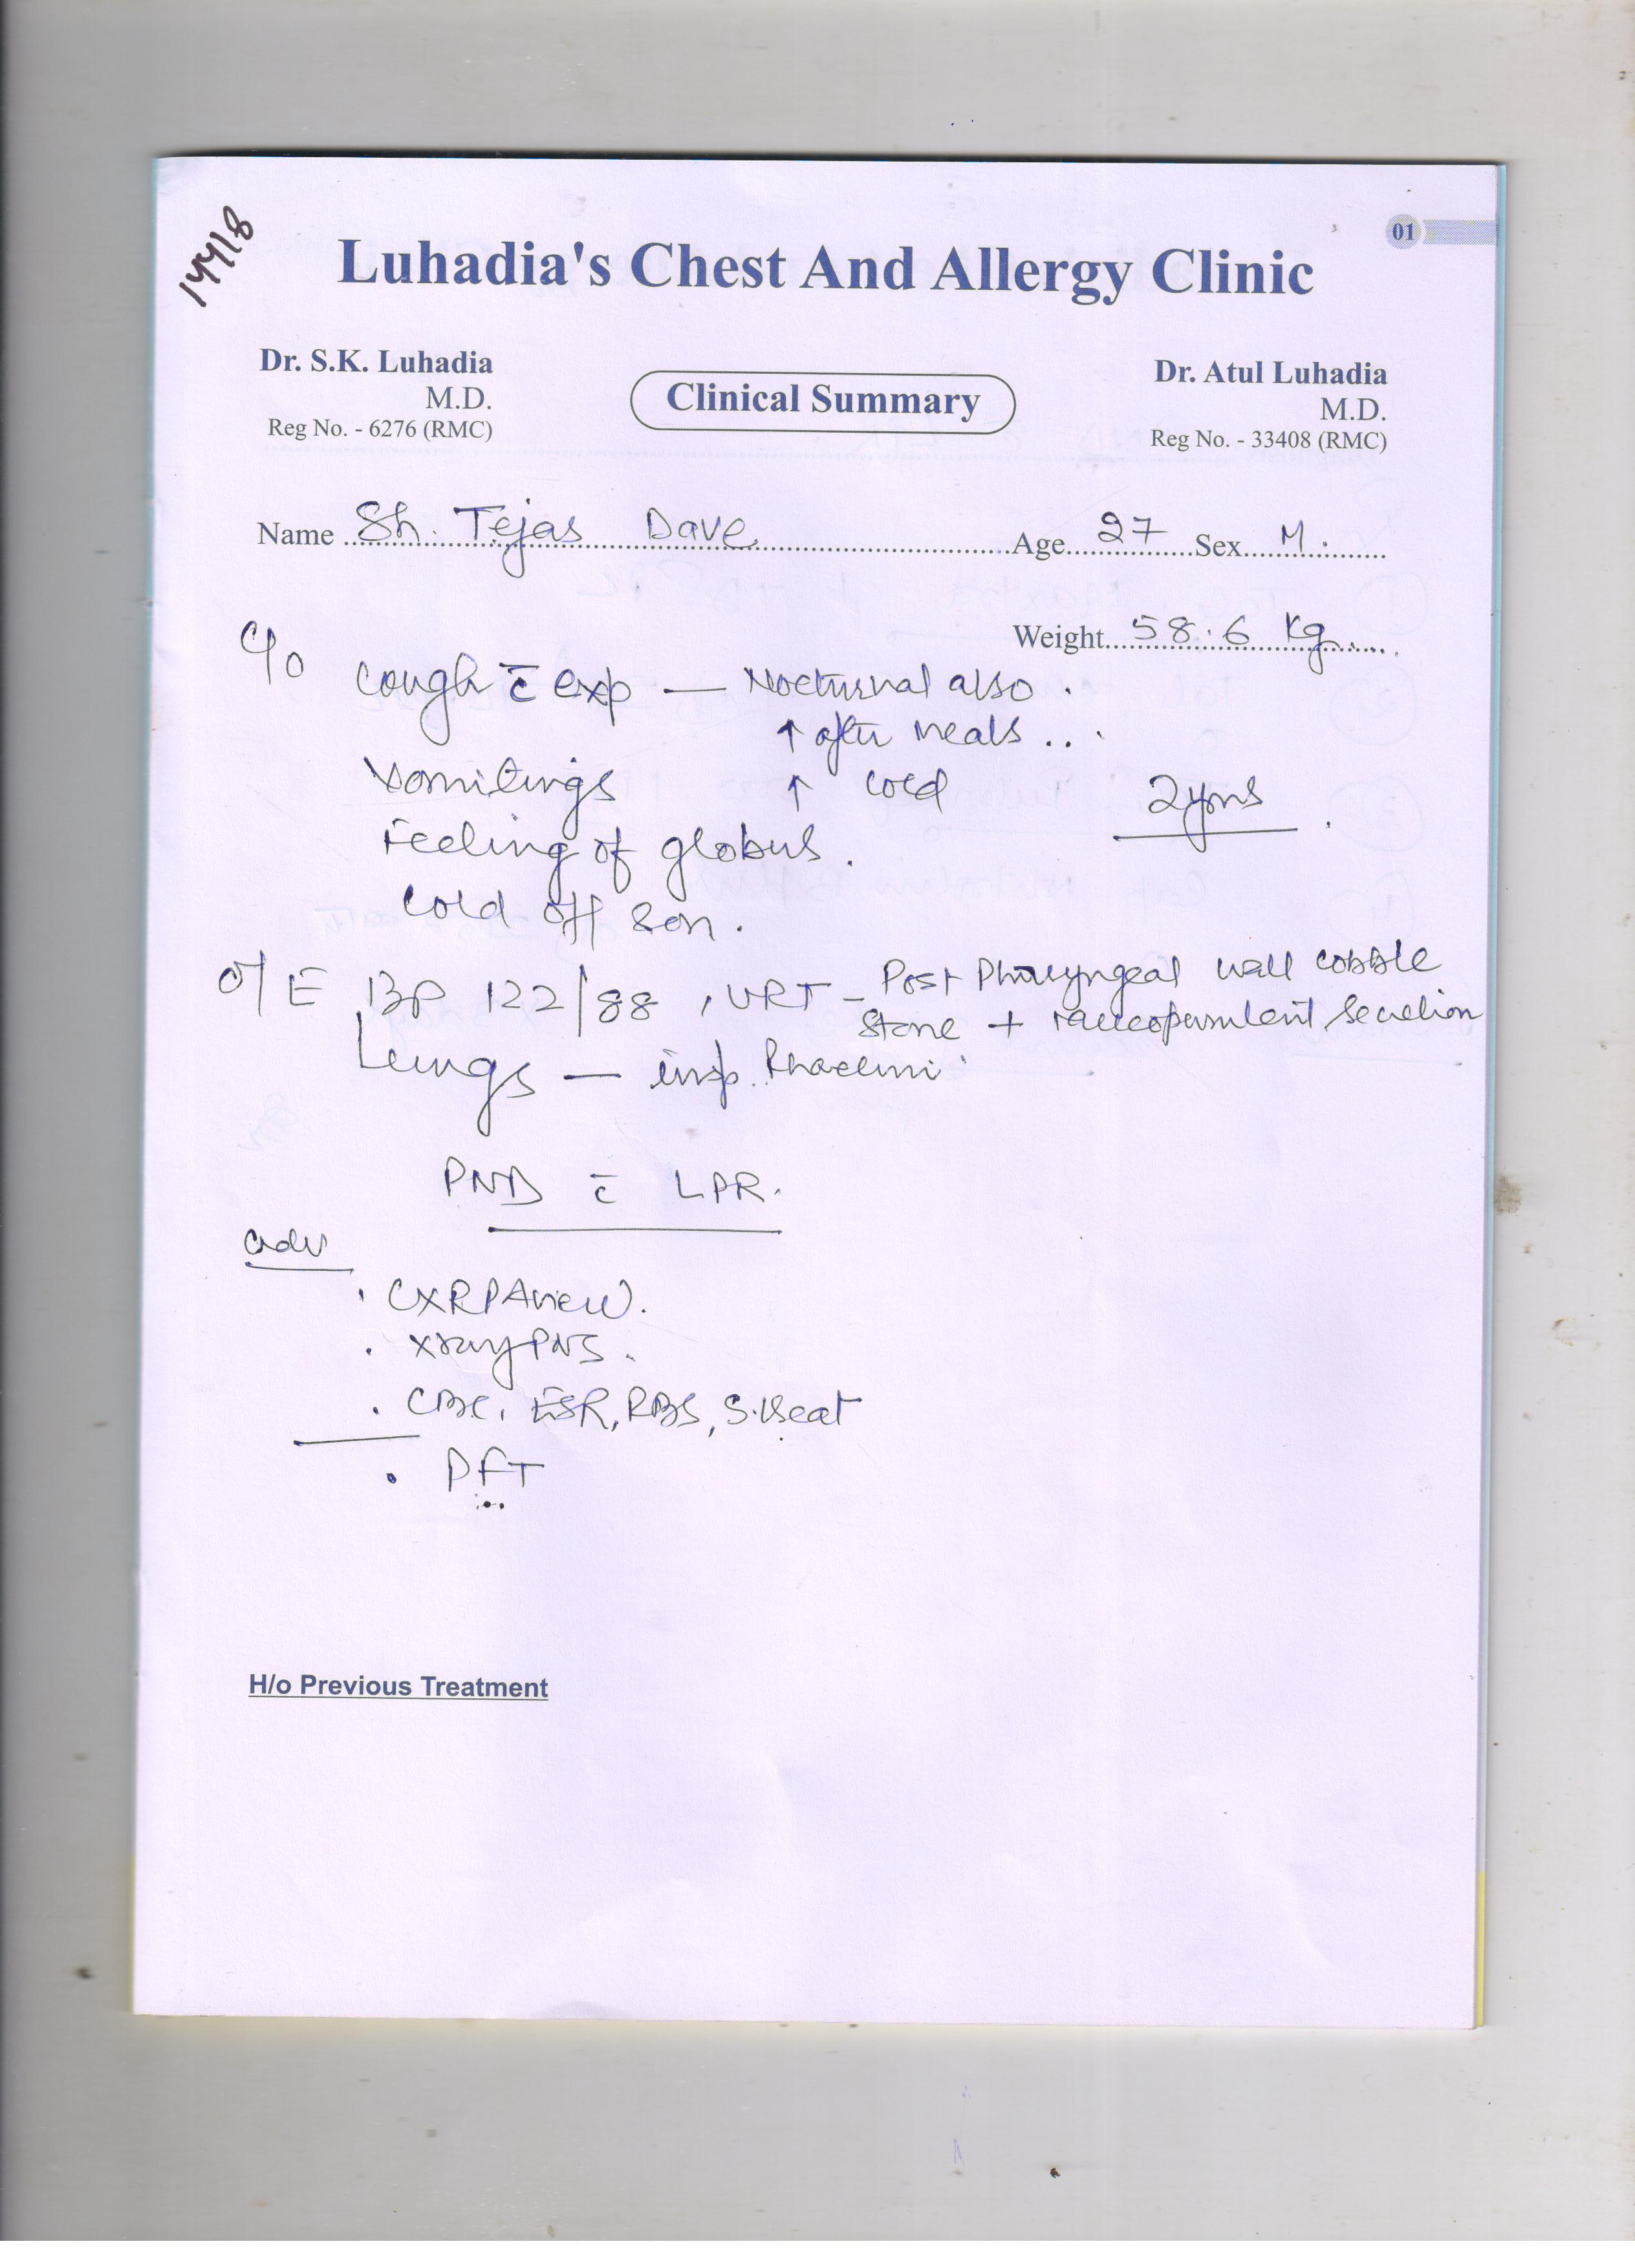 14418
01
Luhadia's Chest And Allergy Clinic
Dr. S.K. Luhadia
M.D.
Reg No. - 6276 (RMC)
Clinical Summary
Dr. Atul Luhadia
M.D.
Reg No. - 33408 (RMC)
Name Sh. Tejas Dave Age 27 Sex M.
Weight 58.6 Kg
C/o cough c̄ exp — Nocturnal also.
↑ after meals ...
Vomitings ↑ cold 2yrs
Feeling of globus.
cold off & on.
O/E BP 122/88, URT - Post Pharyngeal wall cobble
stone + mucopurulent secretion
Lungs — insp. Rhonchi
PND c̄ LPR.
adv
. CXR PA view.
. Xray PNS.
. CBC, ESR, RBS, S.
. PFT
H/o Previous Treatment